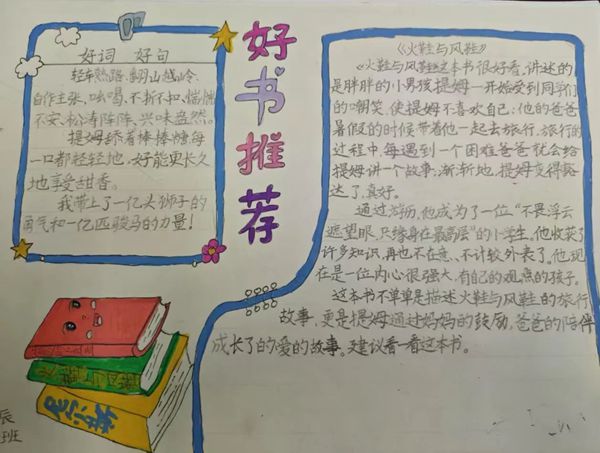 好词 好句
轻车熟路、翻山越岭、
自作主张、吆喝、不折不扣、惴惴
不安、松涛阵阵、兴味盎然。
提姆舔着棒棒糖每
一口都轻轻地,好能更长久
地享受甜香。
我带上了一亿头狮子的
勇气和一亿匹骏马的力量!
好书推荐
《火鞋与风鞋》
《火鞋与风鞋》这本书很好看,讲述的
是胖胖的小男孩提姆一开始受到同学们
的嘲笑,使提姆不喜欢自己;他的爸爸
暑假的时候带着他一起去旅行,旅行的
过程中,每遇到一个困难爸爸就会给
提姆讲一个故事,渐渐地,提姆变得豁
达了,真好。
通过游历,他成为了一位“不畏浮云
遮望眼,只缘身在最高层”的小学生,他收获了
许多知识,再也不在意、不计较外表了,他现
在是一位内心很强大,有自己的观点的孩子。
这本书不单单是描述火鞋与风鞋的旅行
故事,更是提姆通过妈妈的鼓励,爸爸的陪伴
成长了的爱的故事。建议看一看这本书。
辰
班